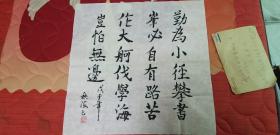 勤為小徑攀書
峯必自有路苦
作大舸伐學海
豈怕無邊